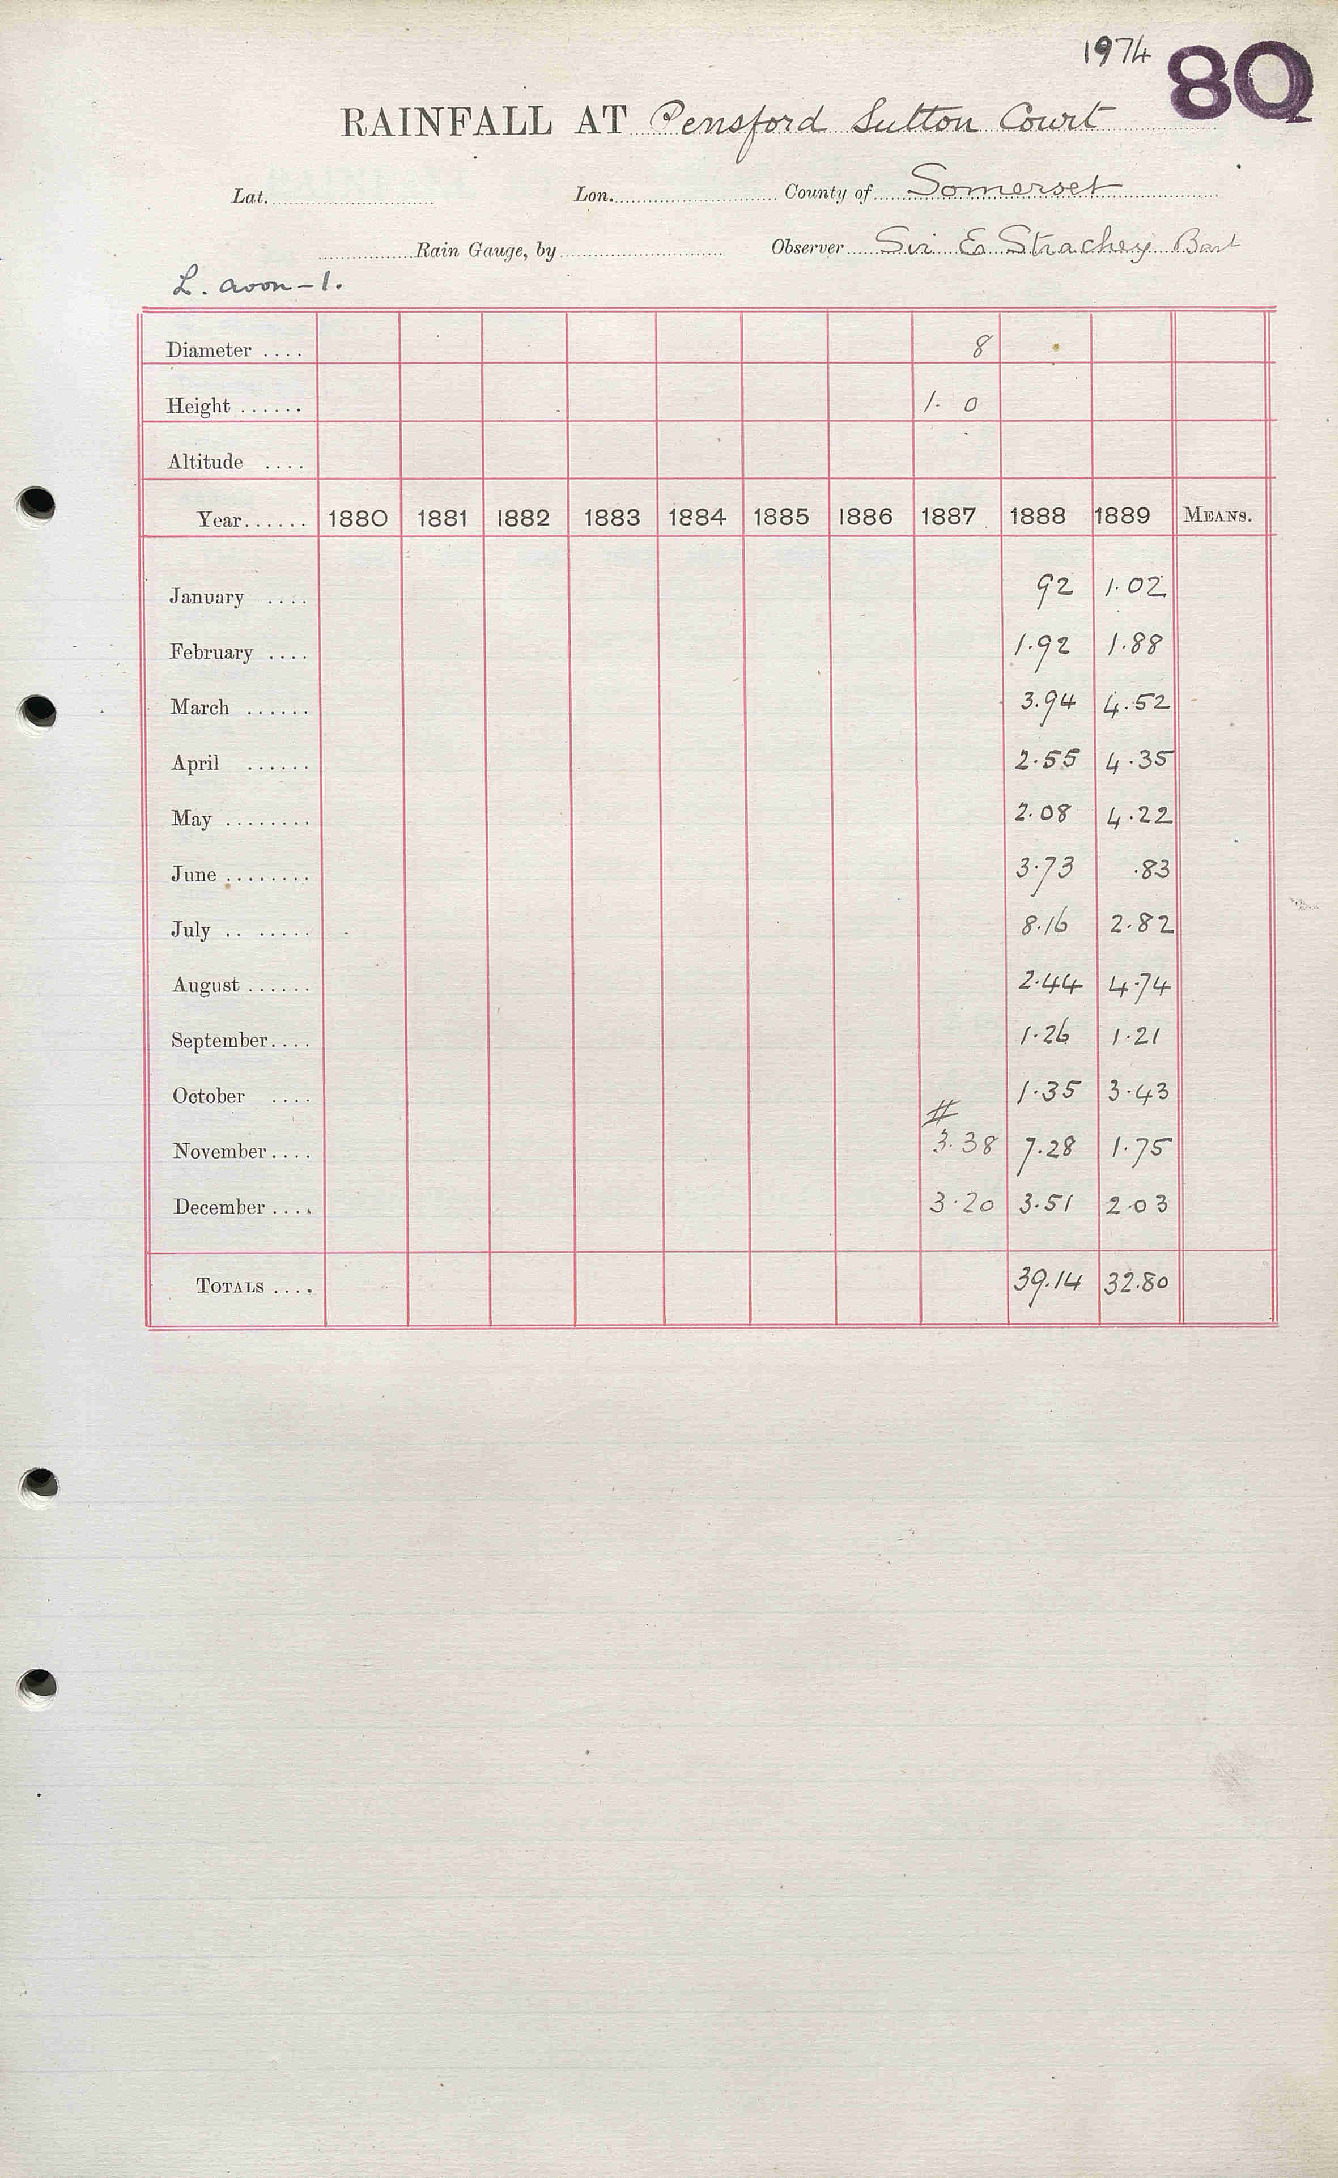 1974 8Q
RAINFALL AT Pensford Sutton Court
Lat. Lon. County of Somerset
Rain Gauge, by Observer Sir E Strachey Bart
L. avon - 1.
Diameter .... 8
Height ...... 1. 0
Altitude ....
Year...... 1880 1881 1882 1883 1884 1885 1886 1887 1888 1889 MEANS.
January .... 92 1.02
February .... 1.92 1.88
March ...... 3.94 4.52
April ...... 2.55 4.35
May ........ 2.08 4.22
June ........ 3.73 .83
July .. ..... 8.16 2.82
August ...... 2.44 4.74
September.... 1.26 1.21
October .... 1.35 3.43
#
November.... 3.38 7.28 1.75
December .... 3.20 3.51 2.03
TOTALS .... 39.14 32.80